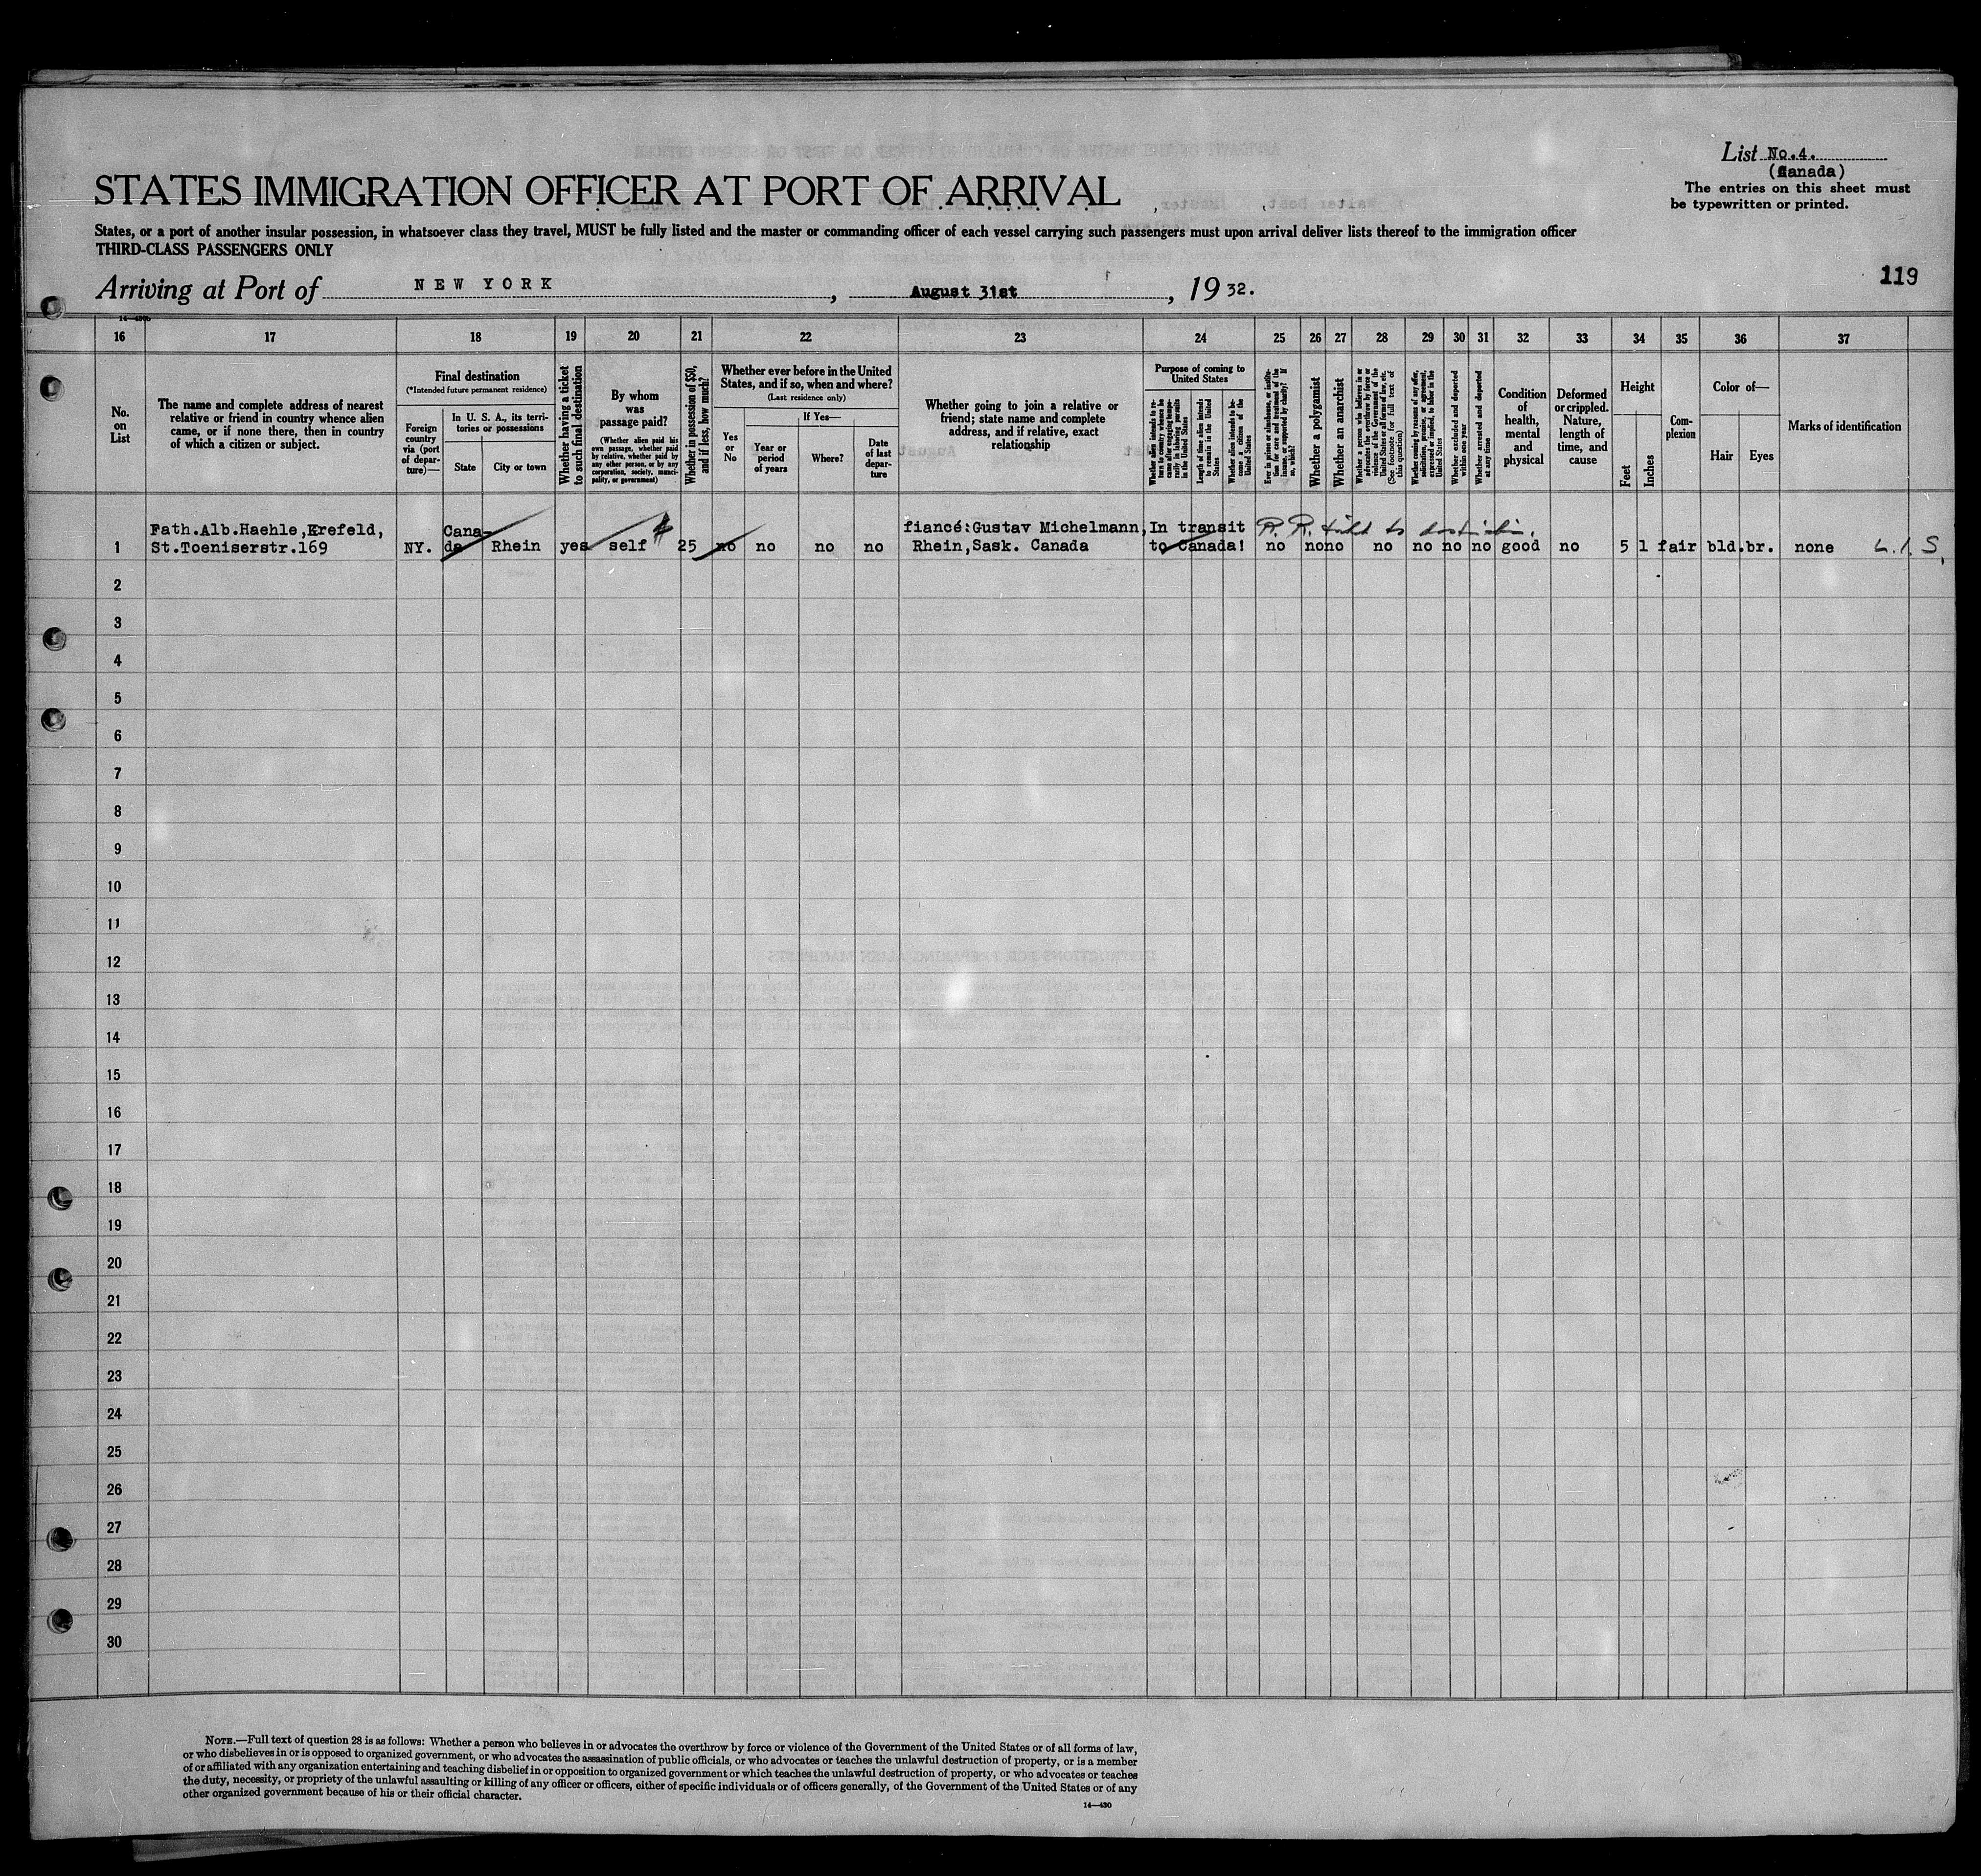 List No.4.
(Canada)
The entries on this sheet must
be typewritten or printed.
STATES IMMIGRATION OFFICER AT PORT OF ARRIVAL
States, or a port of another insular possession, in whatsoever class they travel, MUST be fully listed and the master or commanding officer of each vessel carrying such passengers must upon arrival deliver lists thereof to the immigration officer
THIRD-CLASS PASSENGERS ONLY
119
Arriving at Port of NEW YORK, August 31st, 1932.
16 17 18 19 20 21 22 23 24 25 26 27 28 29 30 31 32 33 34 35 36 37
No.
on
List
The name and complete address of nearest
relative or friend in country whence alien
came, or if none there, then in country
of which a citizen or subject.
Final destination
(*Intended future permanent residence)
Foreign
country
via (port
of depar-
ture)—
In U. S. A., its terri-
tories or possessions
State
City or town
Whether having a ticket
to such final destination
By whom
was
passage paid?
(Whether alien paid his
own passage, whether paid
by relative, whether paid by
any other person, or by any
corporation, society, munci-
pality, or government)
Whether in possession of $50,
and if less, how much?
Whether ever before in the United
States, and if so, when and where?
(Last residence only)
Yes
or
No
If Yes—
Year or
period
of years
Where?
Date
of last
depar-
ture
Whether going to join a relative or
friend; state name and complete
address, and if relative, exact
relationship
Purpose of coming to
United States
Whether alien intends to re-
turn to country whence he
came after engaging tempo-
rarily in laboring pursuits
in the United States
Length of time alien intends
to remain in the United
States
Whether alien intends to be-
come a citizen of the
United States
Ever in prison or almshouse, or institu-
tion for care and treatment of the
insane, or supported by charity? If
so, which?
Whether a polygamist
Whether an anarchist
Whether a person who believes in or
advocates the overthrow by force or
violence of the Government of the
United States or all forms of law, etc.
(See footnote for full text of
this question)
Whether coming by reason of any offer,
solicitation, promise, or agreement,
expressed or implied, to labor in the
United States
Whether excluded and deported
within one year
Whether arrested and deported
at any time
Condition
of
health,
mental
and
physical
Deformed
or crippled.
Nature,
length of
time, and
cause
Height
Feet
Inches
Com-
plexion
Color of—
Hair
Eyes
Marks of identification
Fath.Alb.Haehle,Krefeld, Cana- $ fiancé:Gustav Michelmann, In transit R.R. tickt to destination.
1 St.Toeniserstr.169 NY. da Rhein yes self 25 no no no no Rhein,Sask. Canada to Canada! no no no no no no no good no 5 1 fair bld. br. none
2
3
4
5
6
7
8
9
10
11
12
13
14
15
16
17
18
19
20
21
22
23
24
25
26
27
28
29
30
NOTE.—Full text of question 28 is as follows: Whether a person who believes in or advocates the overthrow by force or violence of the Government of the United States or of all forms of law,
or who disbelieves in or is opposed to organized government, or who advocates the assassination of public officials, or who advocates or teaches the unlawful destruction of property, or is a member
of or affiliated with any organization entertaining and teaching disbelief in or opposition to organized government or which teaches the unlawful destruction of property, or who advocates or teaches
the duty, necessity, or propriety of the unlawful assaulting or killing of any officer or officers, either of specific individuals or of officers generally, of the Government of the United States or of any
other organized government because of his or their official character.
14—430